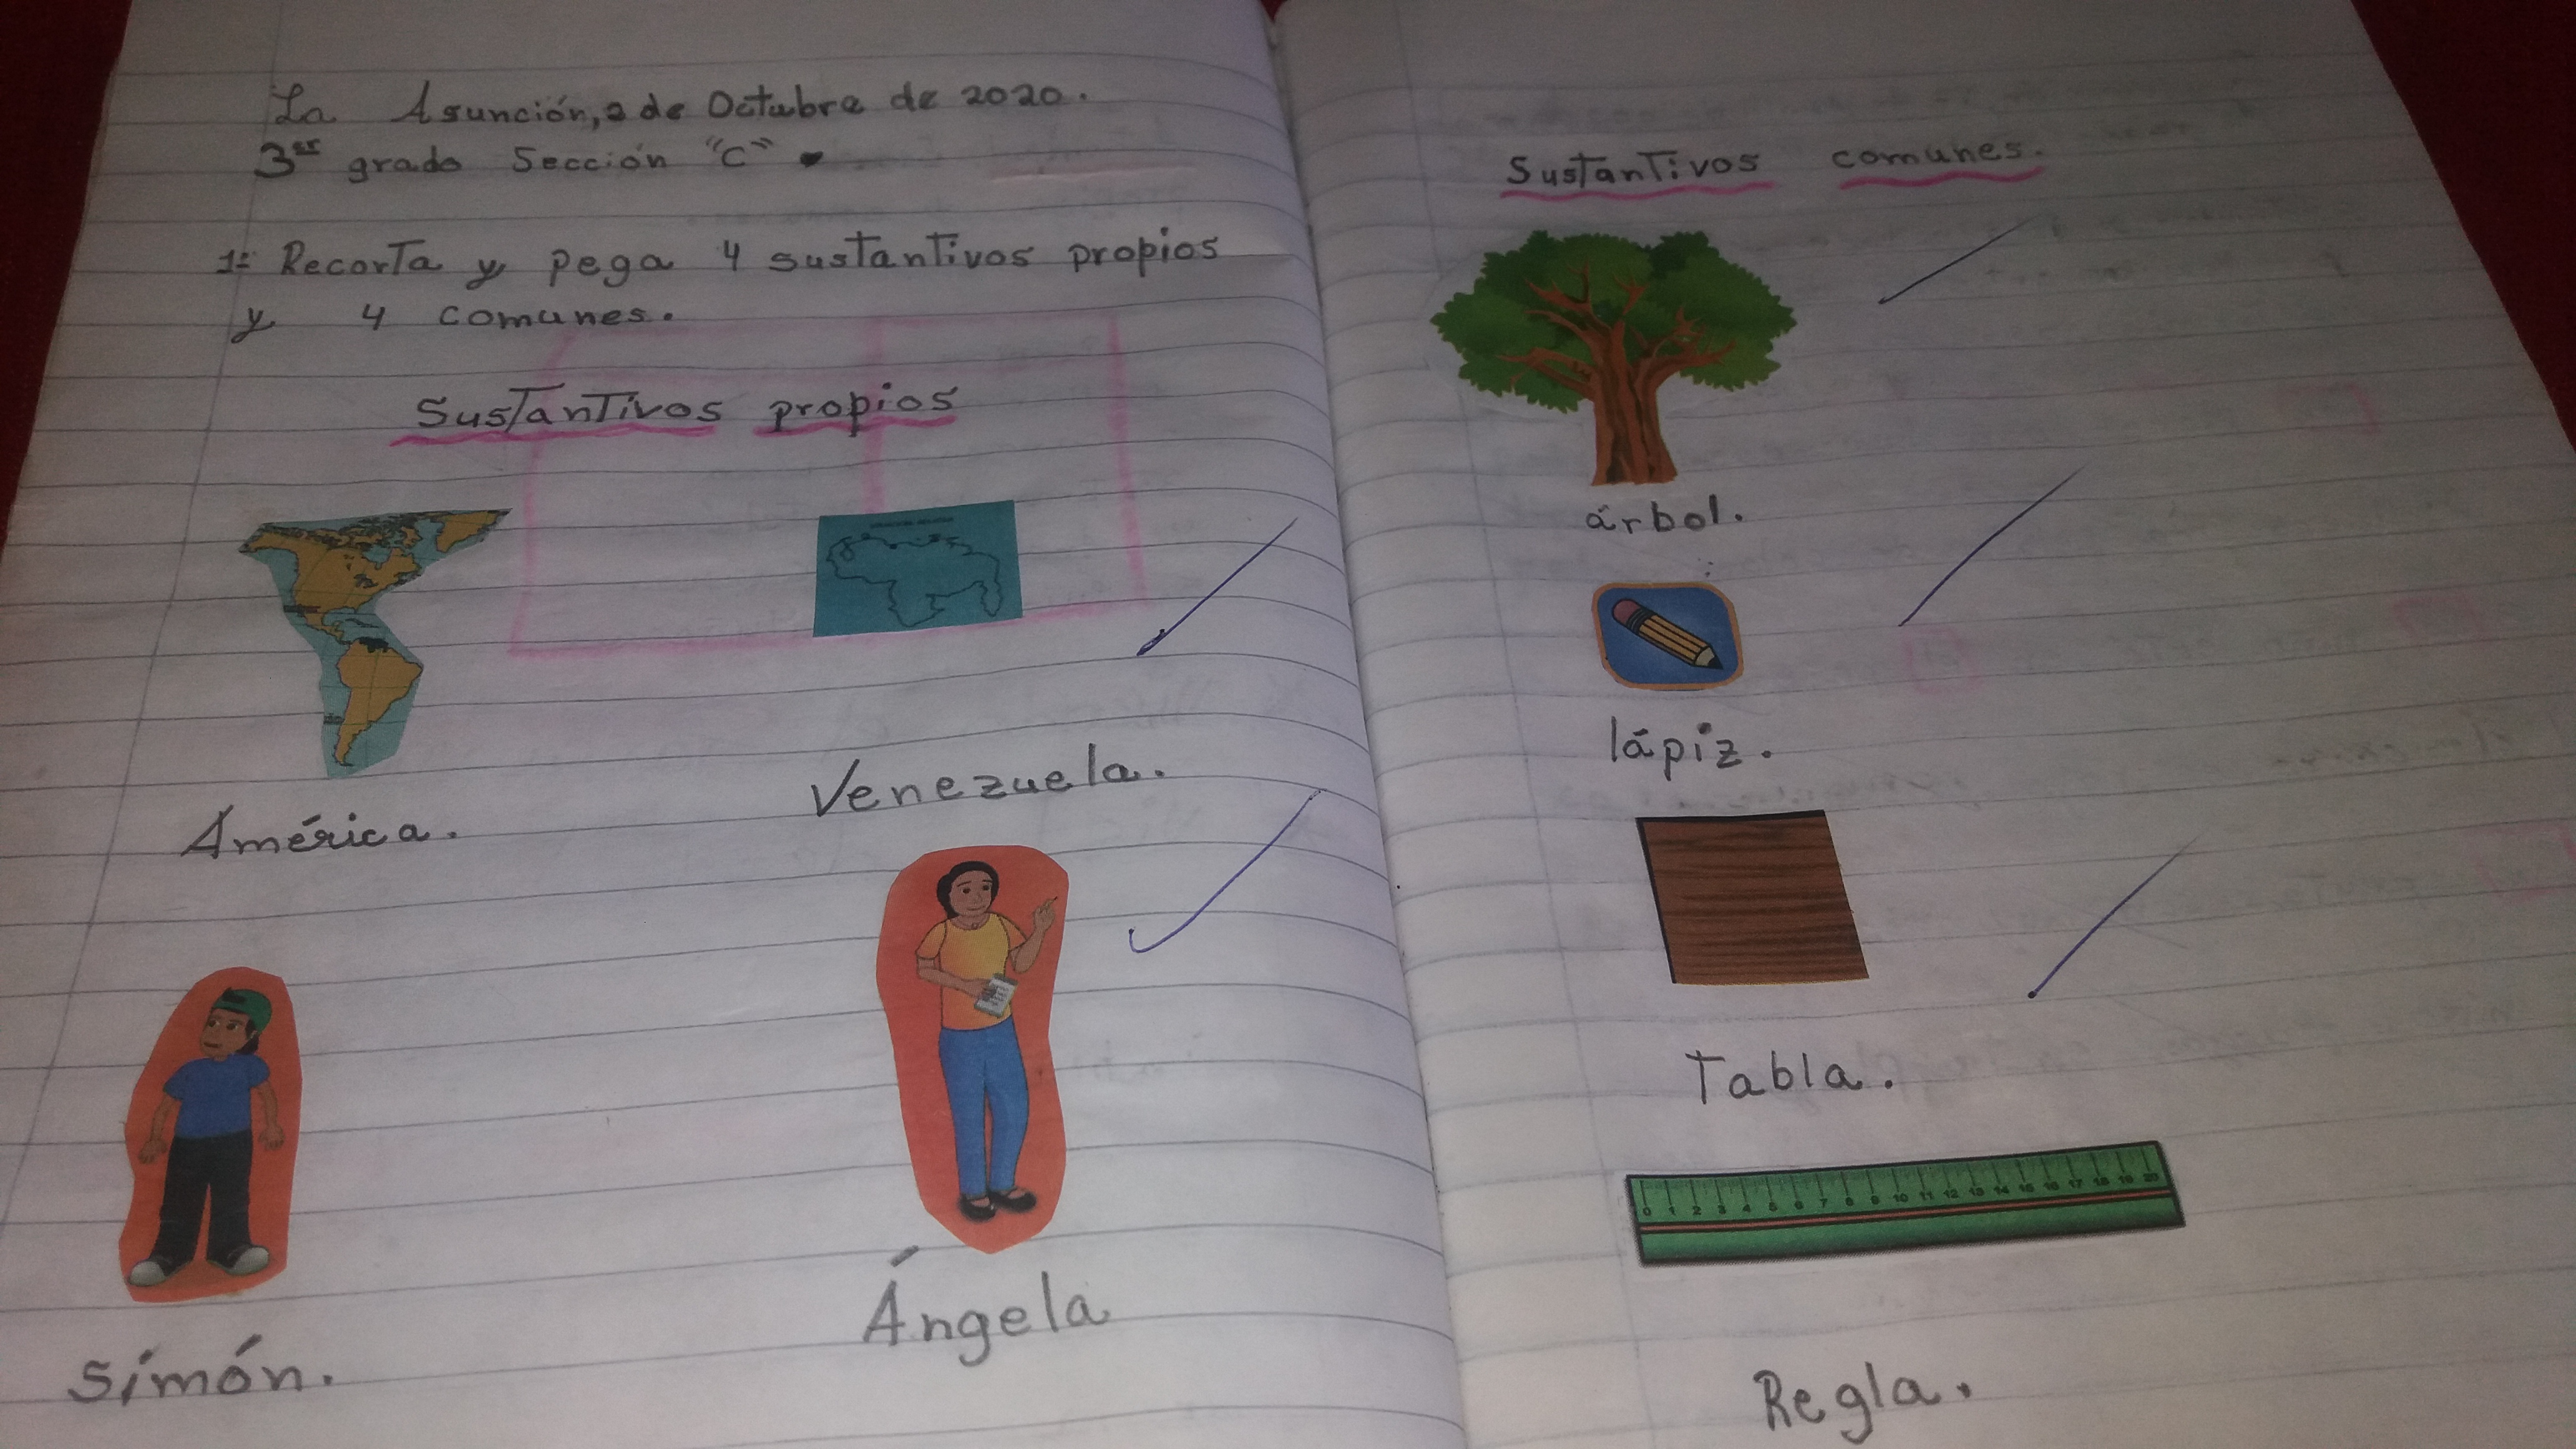 La Asunción, 2 de Octubre de 2020.
3er grado Sección "C"
1= Recorta y pega 4 sustantivos propios
y 4 comunes.
Sustantivos propios
América.
Venezuela.
Simón.
Ángela
Sustantivos comunes.
árbol.
lápiz.
Tabla.
0 1 2 3 4 5 6 7 8 9 10 11 12 13 14 15 16 17 18 19 20
Regla.